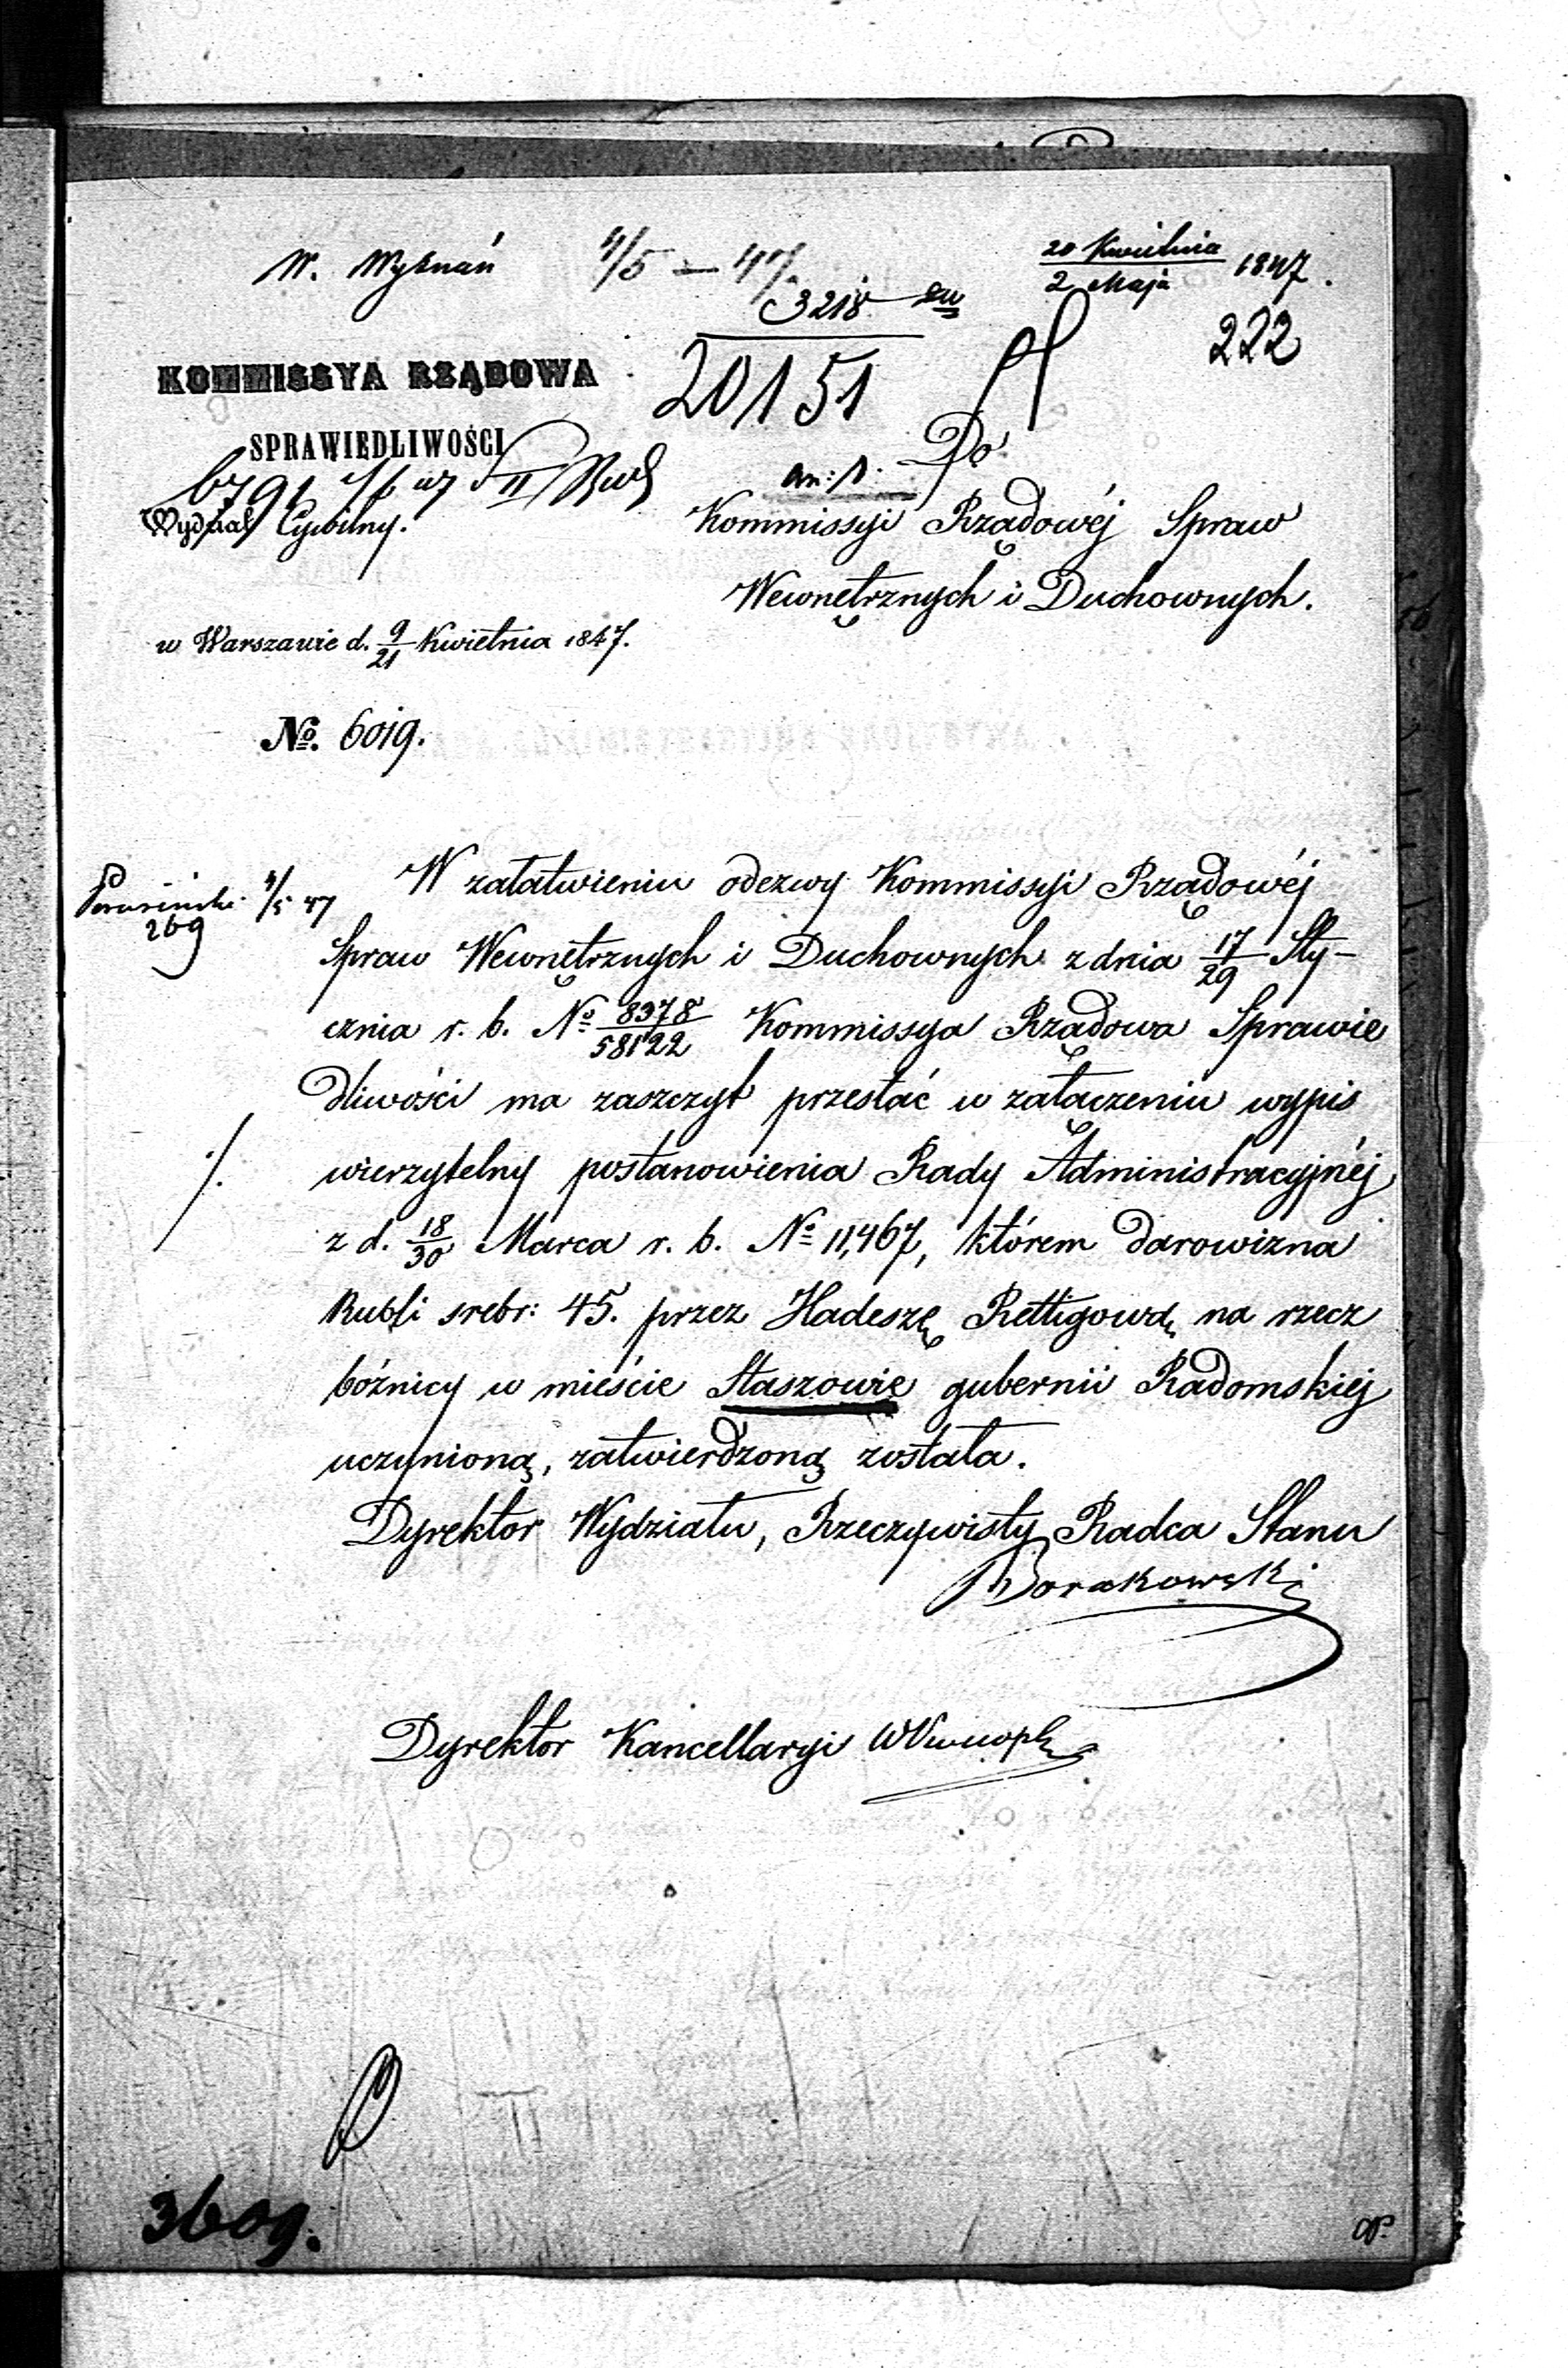 W. Wyznań 4/5 – 47
20 Kwietnia / 2 Maja 1847.
3218
222
20151
KOMMISSYA RZĄDOWA
SPRAWIEDLIWOŚCI
6791
Wydział Cywilny.
Do
an: 1.
Kommissyi Rządowéj Spraw
Wewnętrznych i Duchownych.
w Warszawie d. 9/21 Kwietnia 1847.
No. 6019.
4/5 47
269
W załatwieniu odezwy Kommissyi Rządowéj
Spraw Wewnętrznych i Duchownych z dnia 17/29 Sty-
cznia r. b. No 8378/58122 Kommissya Rządowa Sprawie
dliwości ma zaszczyt przesłać w załączeniu wypis
wierzytelny postanowienia Rady Administracyjnéj
z d. 18/30 Marca r. b. No 11,467, którem darowizna
Rubli srebr: 45. przez Hadeszę Rettigową na rzecz
bóżnicy w mieście Staszowie gubernii Radomskiej
uczynioną, zatwierdzoną została.
Dyrektor Wydziału, Rzeczywisty Radca Stanu
Dyrektor Kancellaryi
3609.